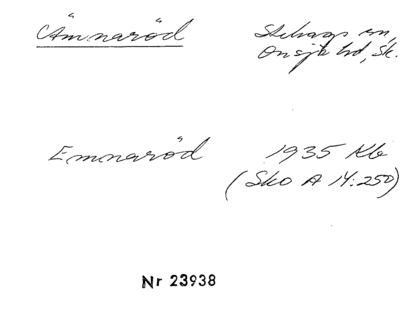 (Ämnaröd Stehags sn,
Onsjö hd, Sk.
Emnaröd 1935 Kb
(Sko A 14:250)
Nr 23938